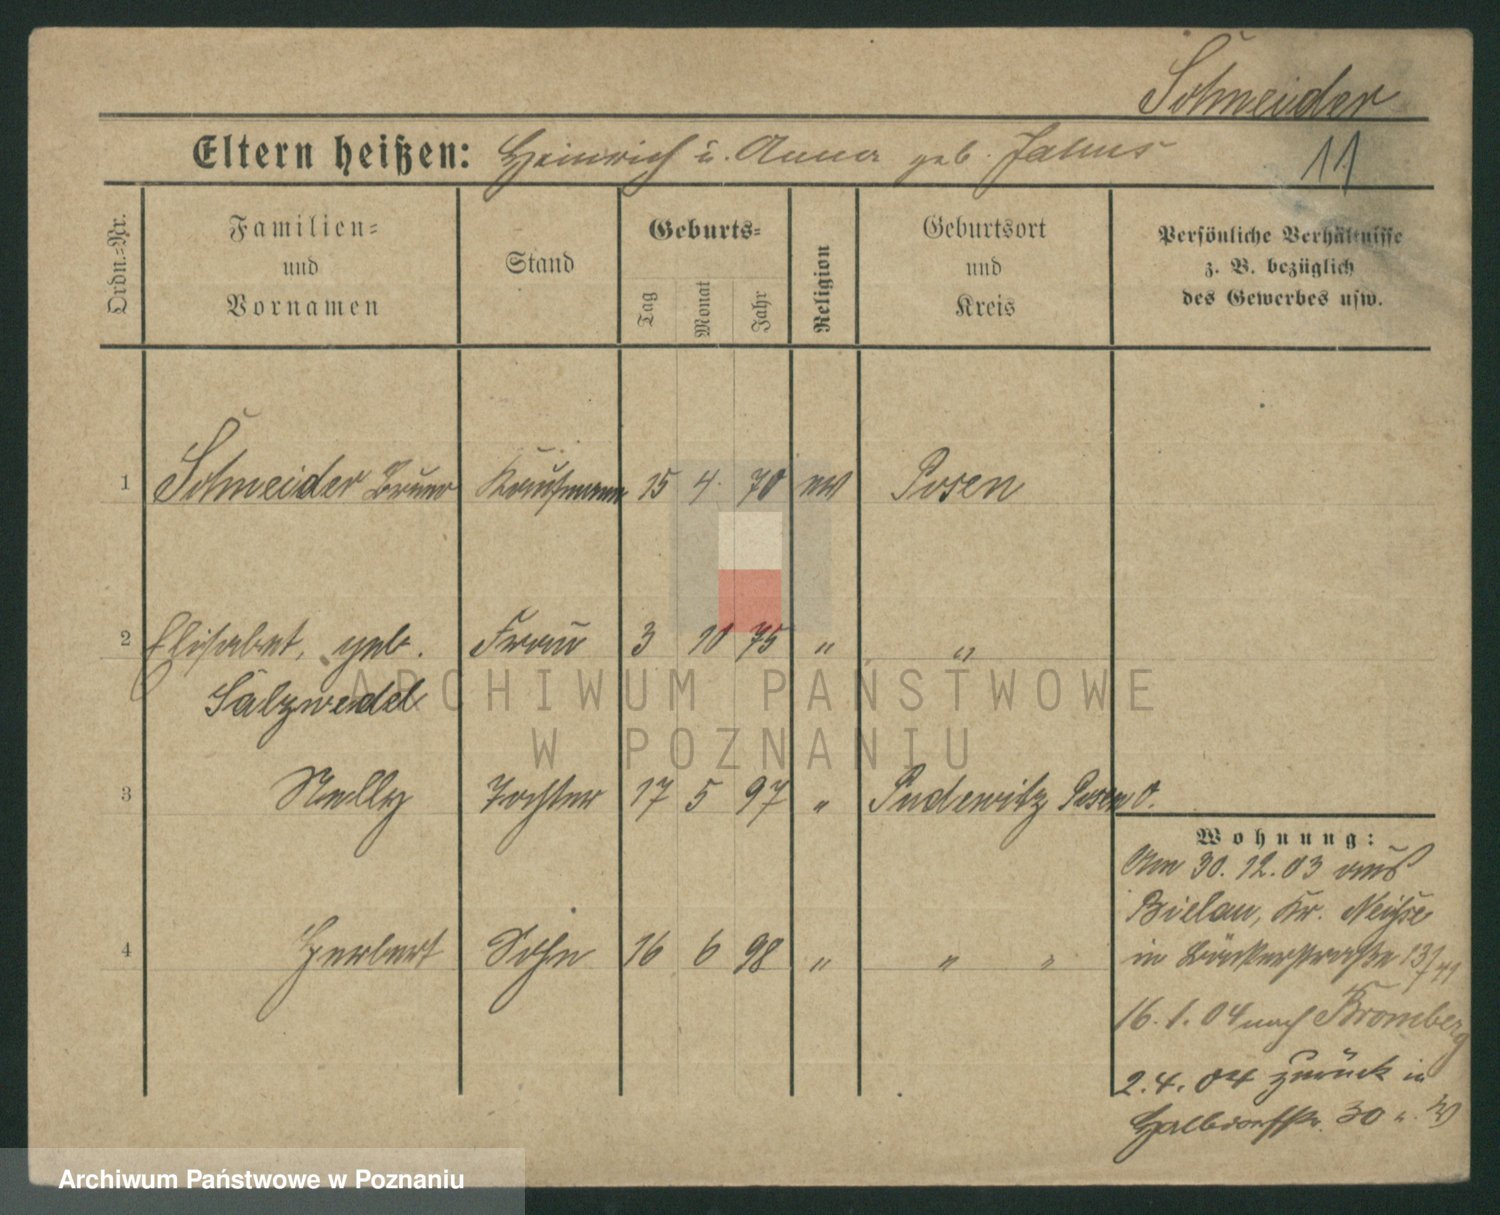 Schneider
Eltern heißen: Heinrich u. Anna geb. Jahns
11
Ordn.=Nr.
Familien=
und
Vornamen
Stand
Geburts=
Tag
Monat
Jahr
Religion
Geburtsort
und
Kreis
Persönliche Verhältnisse
z. B. bezüglich
des Gewerbes usw.
1 Schneider Bruno Kaufmann 15 4. 70 ev Posen
2 Elisabet, geb. Frau 3 10 75 " "
Salzwedel
3 Nelly Tochter 17 5 97 " Pudewitz Posen O.
4 Herbert Sohn 16 6 98 " " "
Wohnung:
Am 30.12.03 aus
Bielau, Kr. Neisse
in Bäckerstraße 13/
16.1.04 nach Bromberg
2.4.04 zurück in
Halbdorfstr. 30
ARCHIWUM PAŃSTWOWE
W POZNANIU
Archiwum Państwowe w Poznaniu